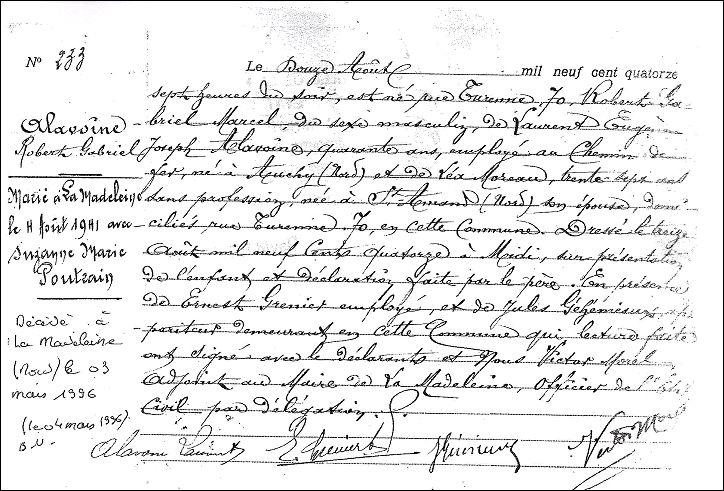 N° 233
Alavoine
Robert Gabriel
Marié à La Madeleine
le 11 Août 1941 avec
Suzanne Marie
Poutrain
Décédé à
La Madeleine
(Nord) le 03
mai 1996
(le 04 mai 1996).
Le Douze Août mil neuf cent quatorze
sept heures du soir, est né rue Turenne, 70, Robert Ga-
briel Marcel, du sexe masculin, de Laurent Eugène
Joseph Alavoine, quarante ans, employé au Chemin de
fer, né à Auchy (Nord) et de Léa Moreau, trente-sept ans
sans profession, née à St Amand (Nord) son épouse, domi-
ciliés rue Turenne, 70, en cette Commune. Dressé le treize
Août mil neuf cent quatorze à Midi, sur présentation
de l'enfant et déclaration faite par le père. En présence
de Ernest Grenier employé, et de Jules ap-
pariteur demeurant en cette Commune qui, lecture faite
ont signé avec le déclarant et Nous Victor Morel
Adjoint au Maire de La Madeleine, Officier de l'Etat
Civil par délégation.
Alavoine Laurent E Grenier